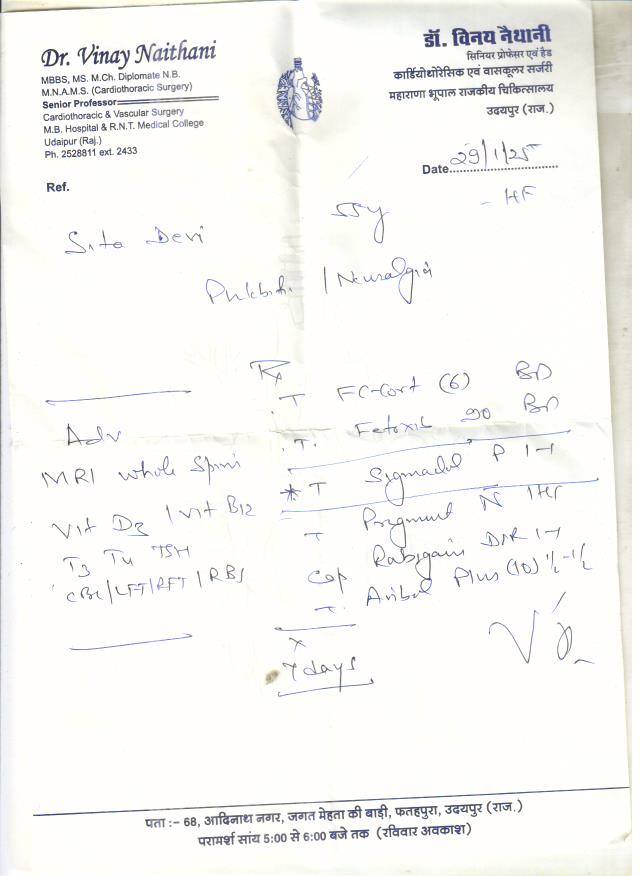 Dr. Vinay Naithani
MBBS, MS. M.Ch. Diplomate N.B.
M.N.A.M.S. (Cardiothoracic Surgery)
Senior Professor
Cardiothoracic & Vascular Surgery
M.B. Hospital & R.N.T. Medical College
Udaipur (Raj.)
Ph. 2528811 ext. 2433
डॉ. विनय नैथानी
सिनियर प्रोफेसर एवं हैड
कार्डियोथोरेसिक एवं वासकूलर सर्जरी
महाराणा भूपाल राजकीय चिकित्सालय
उदयपुर (राज.)
Date 29/1/25
Ref.
Sita Devi 55y - HF
/ Neuralgia
Rx
T FC-Cort (6) BD
T. Fetoxib 90 BD
* T Sigmadol P 1-1
T N 1HS
Cap DSR 1-1
T. Plus (10) ½-½
x
7 days
Adv
MRI whole Spine
Vit D3 / Vit B12
T3 T4 TSH
CBC/LFT/RFT/RBS
पता :- 68, आदिनाथ नगर, जगत मेहता की बाड़ी, फतहपुरा, उदयपुर (राज.)
परामर्श सांय 5:00 से 6:00 बजे तक (रविवार अवकाश)